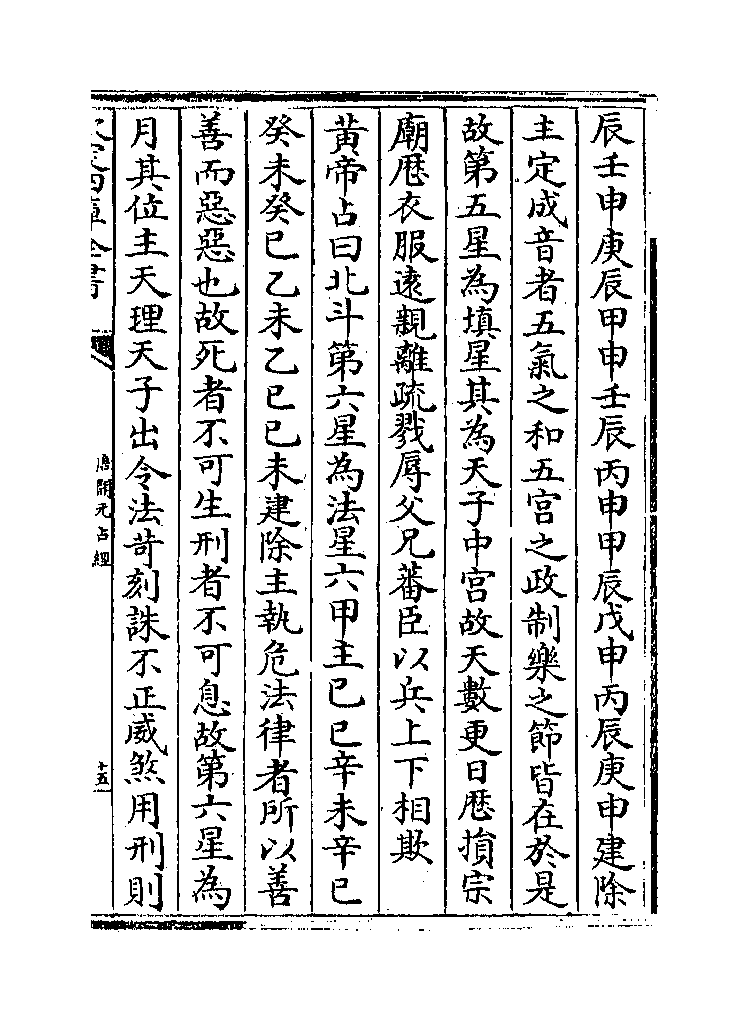 辰壬申庚辰甲申壬辰丙申甲辰戊申丙辰庚申建除
主定成音者五氣之和五宮之政制樂之節皆在於是
故第五星為填星其為天子中宮故天數更日厯損宗
廟厯衣服遠親離疏戮辱父兄蕃臣以兵上下相欺
黄帝占曰北斗第六星為法星六甲主已巳辛未辛巳
癸未癸巳乙未乙巳已未建除主執危法律者所以善
善而惡惡也故死者不可生刑者不可息故第六星為
月其位主天理天子出令法苛刻誅不正威煞用刑則
欽定四庫全書
唐開元占經
十五